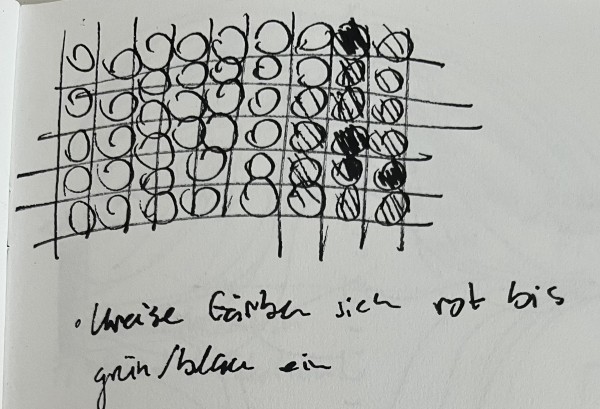 • Kreise färben sich rot bis
grün/blau ein